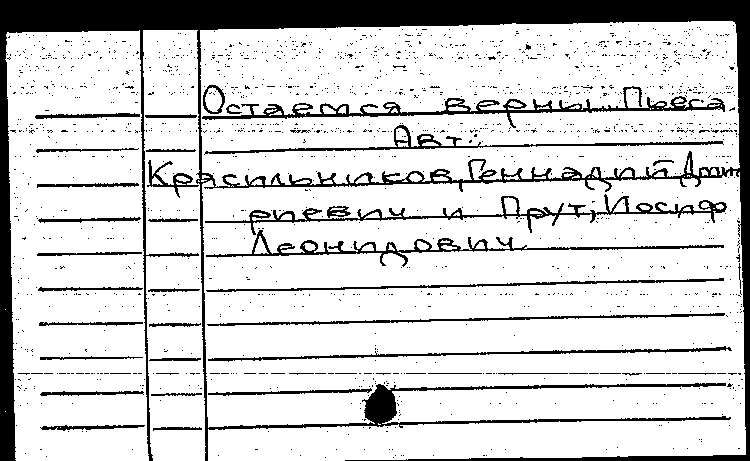 Остаемся верны. Пьеса.
Авт.:
Красильников, Геннадий Дмит
риевич и Прут, Иосиф
Леонидович.